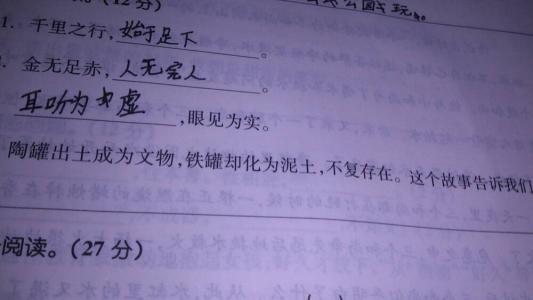 1. 千里之行,始于足下。
金无足赤,人无完人。
耳听为虚,眼见为实。
陶罐出土成为文物,铁罐却化为泥土,不复存在。这个故事告诉我们
阅读。(27分)